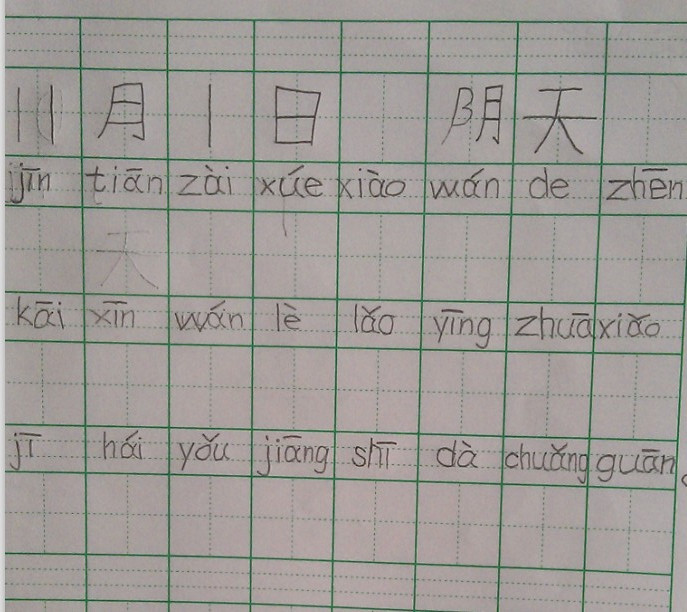 11月1日 阴天
jīn tiān zài xúe xiào wán de zhēn
天
kāi xīn wán lè lǎo yīng zhuā xiǎo
jī hái yǒu jiāng shī dà chuǎng guān。